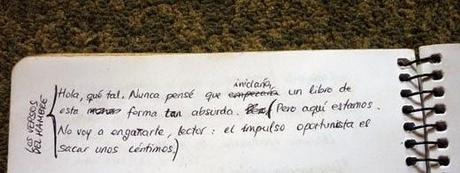 LOS VERSOS
DEL HAMBRE
Hola, qué tal. Nunca pensé que iniciaría un libro de
esta forma tan absurda. (Pero aquí estamos.
No voy a engañarte, lector: el impulso oportunista el
sacar unos céntimos)